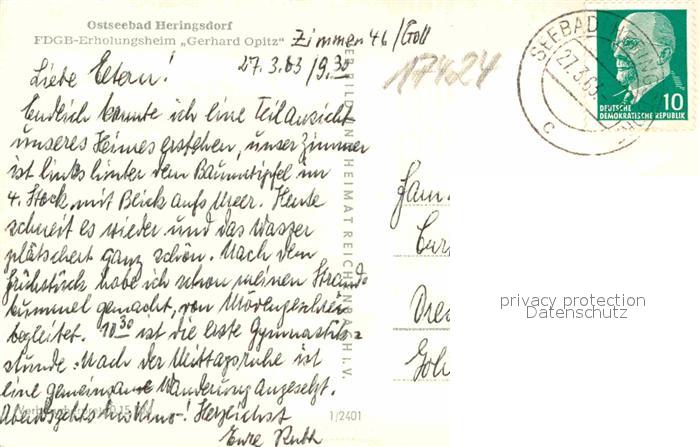 Ostseebad Heringsdorf
FDGB-Erholungsheim „Gerhard Opitz“ Zimmer 46/Goll
27.3.63/9.30
Liebe Eltern!
Endlich konnte ich eine Teilansicht
unseres Heimes erstehen, unser Zimmer
ist links hinter dem Baumwipfel im
4. Stock, mit Blick aufs Meer. Heute
schneit es wieder und das Wasser
plätschert ganz schön. Nach dem
Frühstück habe ich schon meinen Strand-
bummel gemacht, von Mövengeschrei
begleitet. 10.30 ist die erste Gymnastik-
stunde. Nach der Mittagsruhe ist
eine gemeinsame Wanderung angesetzt.
Abends gehts ins Kino! Herzlichst
Eure Ruth
17424
SEEBAD
27.3.63
c
10
DEUTSCHE
DEMOKRATISCHE REPUBLIK
BILD UND HEIMAT REICHENBACH I. V.
1/2401
Fam.
Dres
privacy protection
Datenschutz